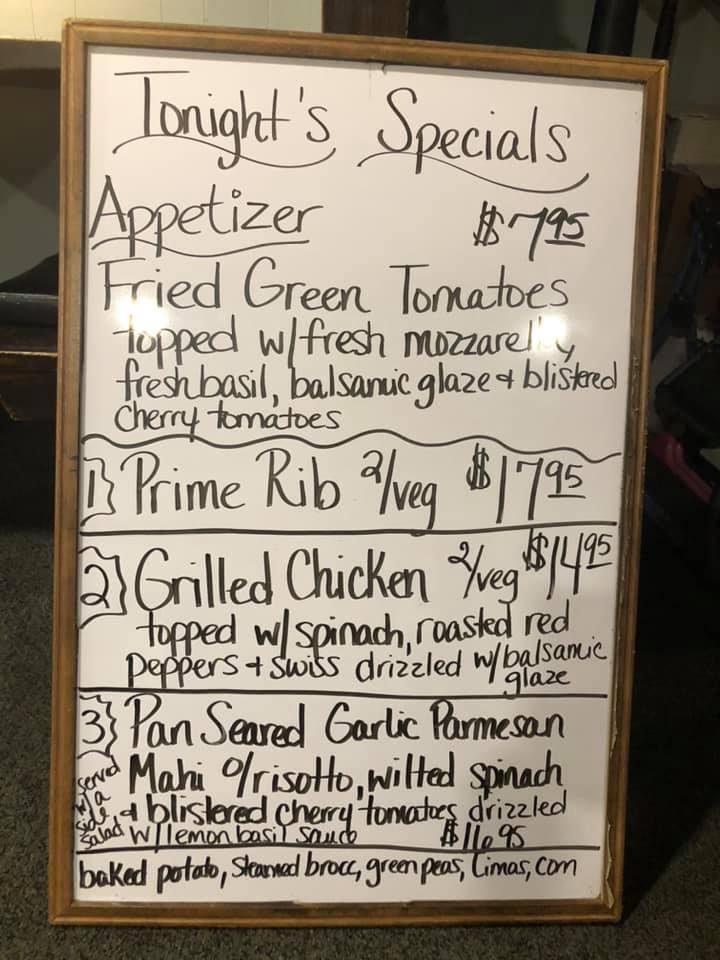 Tonight's Specials
Appetizer $7.95
Fried Green Tomatoes
topped w/fresh mozzarella,
fresh basil, balsamic glaze + blistered
cherry tomatoes
1} Prime Rib 2/veg $17.95
2} Grilled Chicken 2/veg $14.95
topped w/spinach, roasted red
peppers + swiss drizzled w/balsamic
glaze
3} Pan Seared Garlic Parmesan
Mahi o/risotto, wilted spinach
+ blistered cherry tomatoes drizzled
w/lemon basil sauce $16.95
served
w/a
side
salad
baked potato, Steamed brocc, green peas, Limas, corn